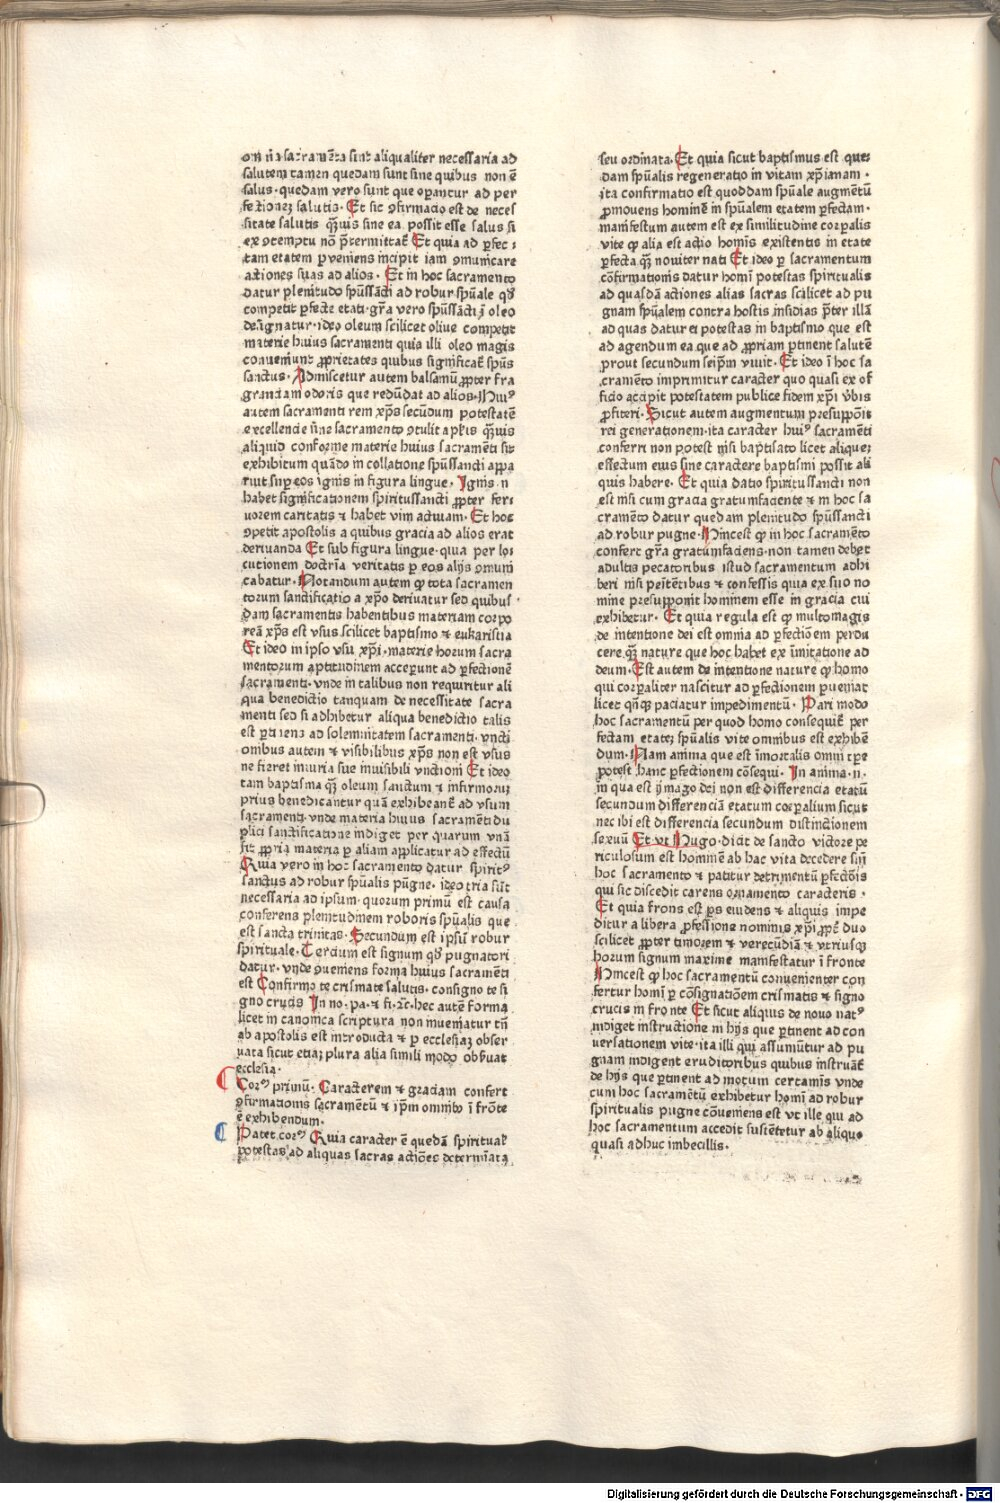 om̄ia sacramēta sint aliqualiter necessaria ad
salutem tamen quedam sunt sine quibus non ē
salus · quedam vero sunt que oꝑantur ad per
fectionez salutis · Et sic ꝯfirmacio est de neces
sitate salutis qͣ̄uis sine ea possit esse salus si
ex ꝯtemptu nō p̄termittat᷑ Et quia ad ꝑfec :
tam etatem ꝑveniens incipit iam ꝯmunicare
actiones suas ad alios · Et in hoc sacramento
datur plenitudo spūssācti ad robur spūale qd̓
competit ꝑfecte etati · gr̄a vero spūssācti ī oleo
designatur · ideo oleum scilicet oliue competit
materie huius sacramenti quia illi oleo magis
conueniunt ꝓprietates quibus significat᷑ spūs
sanctus · Admiscetur autem balsamū ꝓpter fra
grantiam odoris que redūdat ad alios · Huiꝰ
autem sacramenti rem xp̄s secūdum potestatē
excellencie sine sacramento ꝯtulit aplis̄ qͣ̄uis
aliquid conforme materie huius sacramēti sit
exhibitum quādo in collatione spūssancti appa
ruit suꝑ eos ignis in figura lingue · Ignis · n
habet significationem spiritussancti ꝓpter fer:
uorem caritatis ⁊ habet vim actiuam · Et hoc
ꝯpetit apostolis a quibus gracia ad alios erat
deriuanda Et sub figura lingue · quia per lo:
cutionem doctrīa veritatis ꝑ eos alijs ꝯmuni
cabatur · Notandum autem ꝙ tota sacramen
torum sanctificatio a xp̄o deriuatur sed quibus
dam sacramentis habentibus materiam corpo
reā xp̄s est vsus scilicet baptismo ⁊ eukaristia
Et ideo in ipso vsu xp̄i · materie horum sacra
mentorum aptitudinem acceperunt ad ꝑfectionē
sacramenti · vnde in talibus non requiritur ali
qua benedictio tanquam de necessitate sacra
menti sed si adhibetur aliqua benedictio talis
est ꝑtinens ad solemnitatem sacramenti · vncti
onibus autem ⁊ visibilibus xp̄s non est vsus
ne fieret iniuria sue inuisibili vnctioni Et ideo
tam baptisma qͣ̄ oleum sanctum ⁊ infirmoruz
prius benedicantur quā exhibeant᷑ ad vsum
sacramenti · vnde materia huius sacramēti du
plici sanctificatione indiget per quarum vnā
fit ꝓpria materia ꝑ aliam applicatur ad effectū
Quia vero in hoc sacramento datur spiritꝰ
sanctus ad robur spūalis pūgne · ideo tria sūt
necessaria ad ipsum · quorum primū est causa
conferens plenitudinem roboris spūalis que
est sancta trinitas · Secundum est ipsū robur
spirituale · Tercium est signum qd̓ pugnatori
datur · vnde ꝯueniens forma huius sacramēti
est Confirmo te crismate salutis · consigno te si
gno crucis In no · pa · ⁊ fi · ⁊c̄ · hec autē forma
licet in canonica scriptura non inueniatur tn̄
ab apostolis est introducta ⁊ ꝑ ecclesiaz obser
uata sicut etiaz plura alia simili modo obẜuat
ecclesia ·
Corꝰ primū · Caracterem ⁊ graciam confert
ꝯfirmationis sacramētū ⁊ ip̄m om̄ito ī frōte
ē exhibendum ·
Patet corꝰ Quia caracter ē quedā spiritual᷑
potestas ad aliquas sacras actiōes determiāta
seu ordinata · Et quia sicut baptismus est que:
dam spūalis regeneratio in vitam xp̄ianam ·
ita confirmatio est quoddam spūale augmētū
ꝓmouens hominē in spūalem etatem ꝑfectam ·
manifestum autem est ex similitudine corꝑalis
vite ꝙ alia est actio homīs existentis in etate
ꝑfecta qͣ̄ nouiter nati Et ideo ꝑ sacramentum
cōfirmationis datur homī potestas spiritualis
ad quasdā actiones alias sacras scilicet ad pu
gnam spūalem contra hostis insidias p̄ter illā
ad quas datur ei potestas in baptismo que est
ad agendum ea que ad ꝓpriam ꝑtinent salutē
prout secundum seip̄m viuit · Et ideo ī hoc sa
cramēto imprimitur caracter quo quasi ex of
ficio accipit potestatem publice fidem xp̄i v̓bis
ꝓfiteri · Sicut autem augmentum presuppōit
rei generationem · ita caracter huiꝰ sacramēti
conferri non potest nisi baptisato licet alique:
effectum eius sine caractere baptismi possit ali
quis habere · Et quia datio spiritussancti non
est nisi cum gracia gratumfaciente ⁊ in hoc sa
cramēto datur quedam plenitudo spūssancti
ad robur pugne · Hincest ꝙ in hoc sacramēto
confert gr̄a gratumfaciens · non tamen debet
adultis peccatoribus istud sacramentum adhi
beri nisi peītētibus ⁊ confessis quia ex suo no
mine presupponit hominem esse in gracia cui
exhibetur · Et quia regula est ꝙ multomagis
de intentione dei est omnia ad ꝑfectiōem perdu
cere qͣ̄ nature que hoc habet ex īmitatione ad
deum · Est autem de intentione nature ꝙ homo
qui corꝑaliter nascitur ad ꝑfectionem ꝑueniat
licet qn̄qꝫ paciatur impedimentū · Pari modo
hoc sacramentū per quod homo consequit᷑ per
fectam etatez spūalis vite omnibus est exhibē
dum · Nam anima que est īmortalis omni tꝑe
potest hanc ꝑfectionem cōsequi · In anima · n ·
in qua est ymago dei non est differencia etatū
secundum differenciā etatum corꝑalium sicut
nec ibi est differencia secundum distinctionem
sexuū Et vt Hugo dicit de sancto victore pe
riculosum est hominē ab hac vita decedere sin̄
hoc sacramento ⁊ patitur detrimentū ꝑfectōis
qui sic discedit carens ornamento caracteris ·
Et quia frons est ꝑs euidens ⁊ aliquis impe
ditur a libera ꝓfessione nominis xp̄i ꝓpt᷑ duo
scilicet ꝓpter timorem ⁊ verecūdiā ⁊ vtriusqꝫ
horum signum maxime manifestatur ī fronte
Hincest ꝙ hoc sacramentū conuenienter con
fertur homī ꝑ cōsignatiōem crismatis ⁊ signo
crucis in fronte Et sicut aliquis de nouo natꝰ
indiget instructione in hijs que ꝑtinent ad con
uersationem vite · ita illi qui assumūtur ad pu
gnam indigent eruditoribus quibus instruāt᷑
de hijs que ꝑtinent ad motum certaminis vnde
cum hoc sacramētū exhibetur homī ad robur
spiritualis pugne cōueniens est vt ille qui ad
hoc sacramentum accedit sustētetur ab aliquo
quasi adhuc imbecillis ·
Digitalisierung gefördert durch die Deutsche Forschungsgemeinschaft - DFG